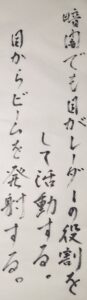 暗闇でも目がレーダーの役割を
して活動する。
目からビームを発射する。